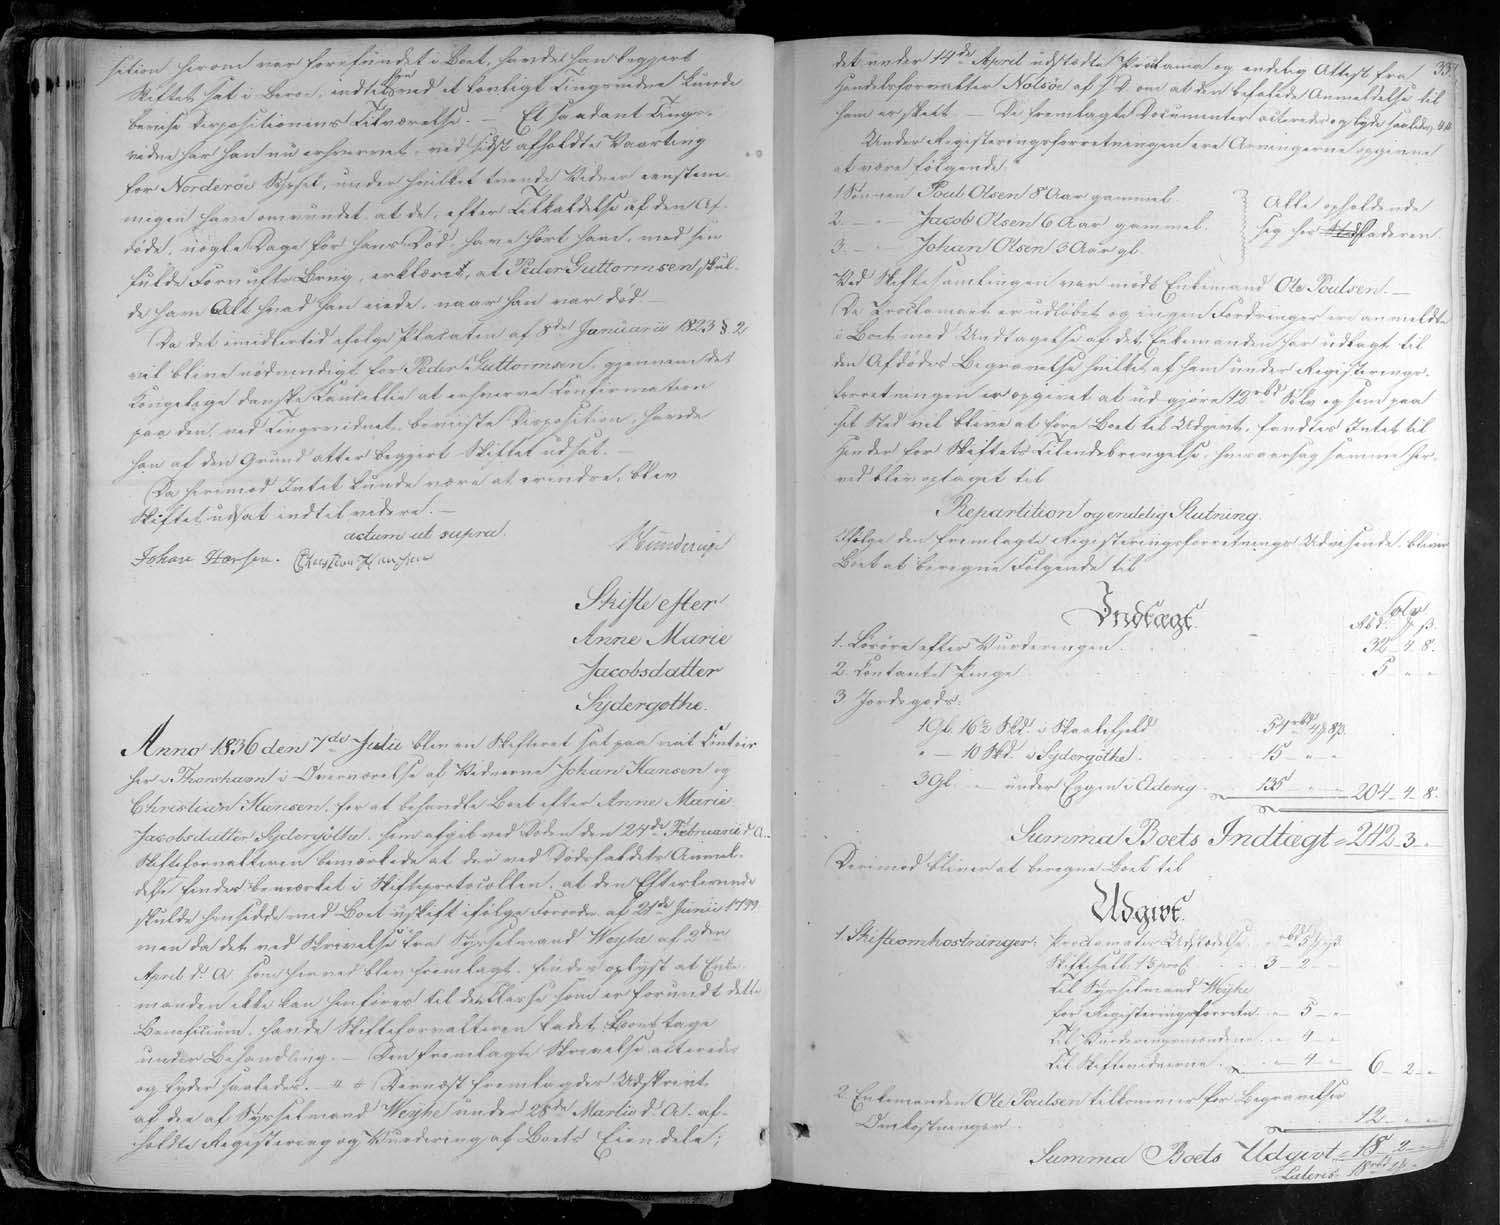 sition herom var forefundet i Boet, havde han begjert
Skiftet sat i Beroe, indtil han ved et lovligt Tingsvidne kunde
bevise Dispositionens Tilværelse. — Et saadant Tings-
vidne har han nu erhvervet, ved sidst afholdte Vaarting
for Norderöe Syssel, under hvilket tvende Vidner eenstem-
migen have omvundet at de, efter Tilkaldelse af den Af-
døde, nogle Dage før hans Død, have hørt ham, med sin
fulde Fornufts Brug, erklære, at Peder Guttormsen skul-
de have Alt hvad han eiede, naar han var död. —
Da det imidlertid ifølge Placaten af 8de Januarii 1823 § 2
vil blive nødvendigt for Peder Guttormsen, gjennem det
Kongelige danske Cancellie at erhverve Confirmation
paa den, ved Tingsvidnet, beviiste Disposition, havde
han af den Grund atter begjert Skiftet udsat. —
Da herimod Intet kunde være at erindre, blev
Skiftet udsat indtil videre. —
actum ut supra.
Johan Hansen. Christian Hansen
Skifte efter
Anne Marie
Jacobsdatter
Sydergøthe.
Anno 1836 den 7de Julii blev en Skifteret sat paa mit Contoir
her i Thorshavn i Overværelse af Vidnerne Johan Hansen og
Christian Hansen, for at behandle Boet efter Anne Marie
Jacobsdatter Sydergøthe, som afgik ved Døden den 24de Februarii d. A.
Skifteforvalteren bemærkede at der ved Dødsfaldets Anmel-
delse findes bemærket i Skifteprotocollen, at den Efterlevende
skulde hensidde med Boet uskift ifølge Forordn. af 21de Junii 1799
men da det ved Skrivelse fra Sysselmand Weyhe af 2den
April d. A. som herved blev fremlagt, findes oplyst at Enke-
manden ikke kan henføres til den Classe som er forundt dette
Beneficium, havde Skifteforvalteren ladet Boet tage
under Behandling. — Den fremlagte Skrivelse acteredes
og lyder saaledes. — Dernæst fremlagdes Udskrivt
af den af Sysselmand Weyhe under 28de Martii d. A. af-
holdte Registering og Vurdering af Boets Eiendele;
335.
det under 14de April udstædte Proclama og endelig Attest fra
Handelsforvalter Nolsöe af s. D. om at den befalede Anmeldelse til
ham er skeet. — De fremlagte Documenter acteredes og lyde saaledes
Under Registeringsforretningen ere Arvingerne opgivne
at være følgende:
1 Sønnen Poul Olsen 8 Aar gammel.
2. — " — Jacob Olsen 6 Aar gammel.
3. — " — Johan Olsen 3 Aar gl.
Alle opholdende
sig hos Faderen.
Ved Skiftesamlingen var mødt Enkemand Ole Poulsen. —
Da Proclamaet er udløbet og ingen Fordringer ere anmeldte
i Boet med Undtagelse af det Enkemanden har udlagt til
den Afdødes Begravelse hvilket af ham under Registerings-
forretningen er opgivet at udgjøre 12 rbd Sølv og som paa
sit Sted vil blive at føre Boet til Udgivt, fandtes Intet til
Hinder for Skiftets Tilendebringelse, hvoraarsag samme her-
ved blev optaget til
Repartition og endelig Slutning.
Ifølge den fremlagte Registeringsforretnings Udvisende bliver
Boet at beregne Følgende til
Indtægt.
Sølv
Rbd. ₰ ß.
1. Løsøre efter Vurderingen 32 - 4 - 8.
2. Contante Penge 5 - " - "
3 Jordegods:
1 Gl. 16½ Skd. i Skaalefjeld 54 rbd 4 ₰ 8 ß.
" — 10 Skd. i Sydergøthe. 15 - " - "
3 Gl. " — under Eggen i Øderig 135 - " - " 204 - 4 - 8.
Summa Boets Indtægt = 242 - 3 - "
Derimod bliver at beregne Boet til
Udgivt.
1. Skifteomkostninger: Proclamates Udstædelse
Skiftesallr. 1⅓ proc. 3 - 2 - "
til Sysselmand Weyhe
for Registeringsforretn. " - 5 - "
til Vurderingsmændene " - 4 - "
til Skiftevidnerne " - 4 - " 6 - 2 - "
2. Enkemanden Ole Poulsen tilkommer for Begravelses
Omkostninger 12 - " - "
Summa Boets Udgivt = 18 - 2 - "
Lateris 18 rbd 2 ₰